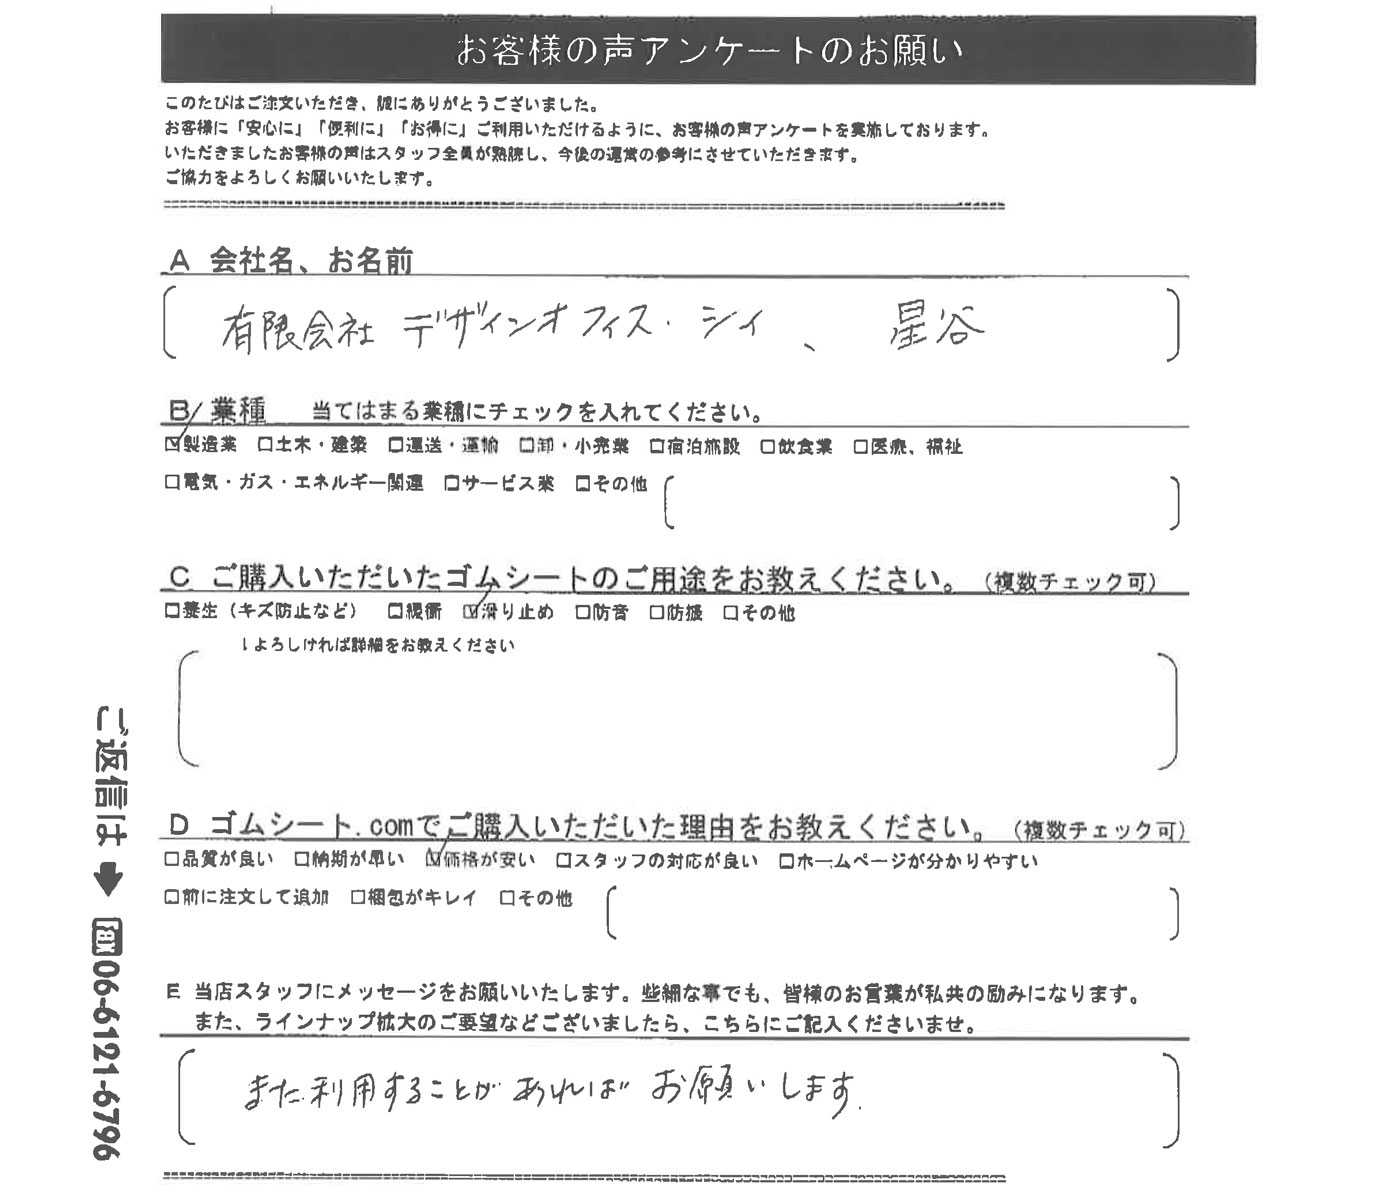 お客様の声アンケートのお願い
このたびはご注文いただき、誠にありがとうございました。
お客様に「安心に」「便利に」「お得に」ご利用いただけるように、お客様の声アンケートを実施しております。
いただきましたお客様の声はスタッフ全員が熟読し、今後の運営の参考にさせていただきます。
ご協力をよろしくお願いいたします。
A 会社名、お名前
有限会社 デザインオフィス・シィ 、 星谷
B 業種 当てはまる業種にチェックを入れてください。
☑製造業 □土木・建築 □運送・運輸 □卸・小売業 □宿泊施設 □飲食業 □医療、福祉
□電気・ガス・エネルギー関連 □サービス業 □その他
C ご購入いただいたゴムシートのご用途をお教えください。（複数チェック可）
□養生（キズ防止など） □緩衝 ☑滑り止め □防音 □防振 □その他
↓よろしければ詳細をお教えください
D ゴムシート.comでご購入いただいた理由をお教えください。（複数チェック可）
□品質が良い □納期が早い ☑価格が安い □スタッフの対応が良い □ホームページが分かりやすい
□前に注文して追加 □梱包がキレイ □その他
E 当店スタッフにメッセージをお願いいたします。些細な事でも、皆様のお言葉が私共の励みになります。
また、ラインナップ拡大のご要望などございましたら、こちらにご記入くださいませ。
また利用することがあればお願いします.
ご返信は➡FAX06-6121-6796